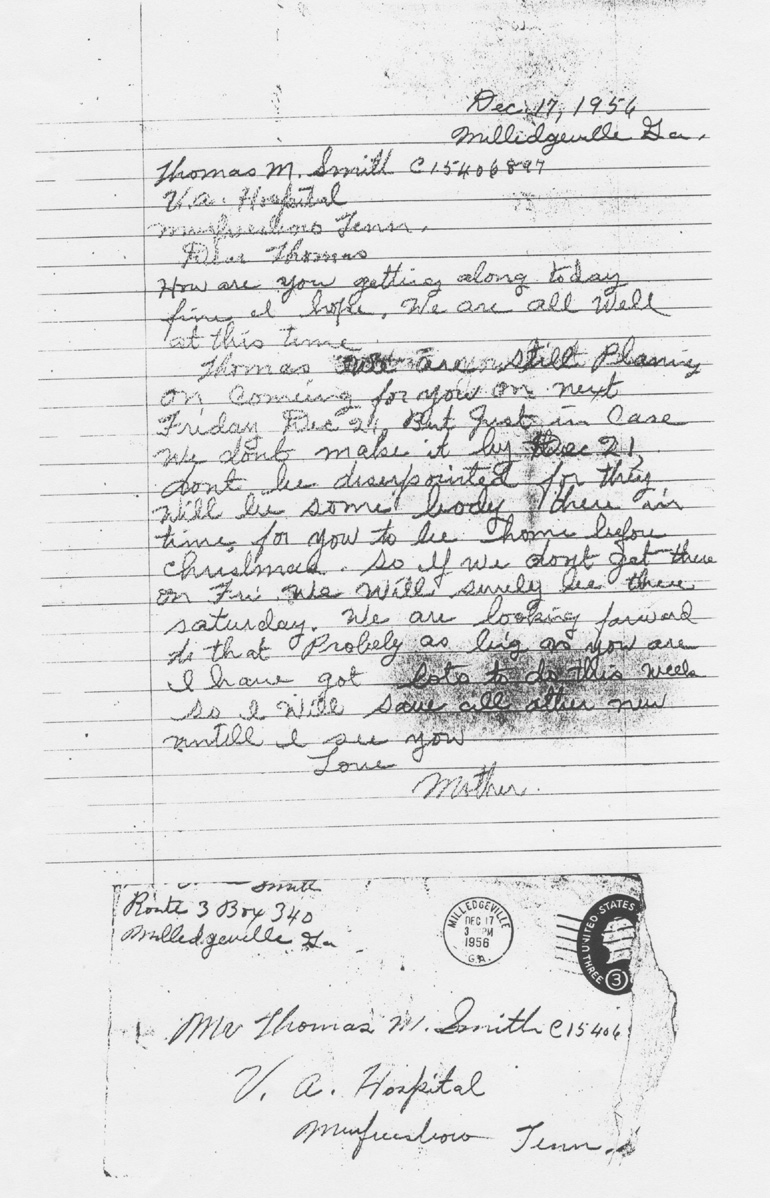 Dec. 17, 1956
Milledgeville Ga.
Thomas M. Smith C15406897
V.A. Hospital
Murfreesboro Tenn.
Dear Thomas
How are you getting along today
fine I hope. We are all Well
at this time
Thomas We are still Planing
on Comeing for you on next
Friday Dec 21, But Just in Case
We dont make it by Dec 21,
dont be disapointed for they
Will be some body there in
time for you to be home before
christmas. So if we dont get there
on Fri We Will surely be there
saturday. We are looking forward
to that Probely as big as you are
I have got lots to do this week
so I Will save all other new
untill I see you
Love
Mother.
Smith
Route 3 Box 340
Milledgeville Ga
MILLEDGEVILLE
DEC 17
3 PM
1956
GA.
UNITED STATES
THREE
3
Mr Thomas M. Smith C15406
V. A. Hospital
Murfreesboro Tenn.